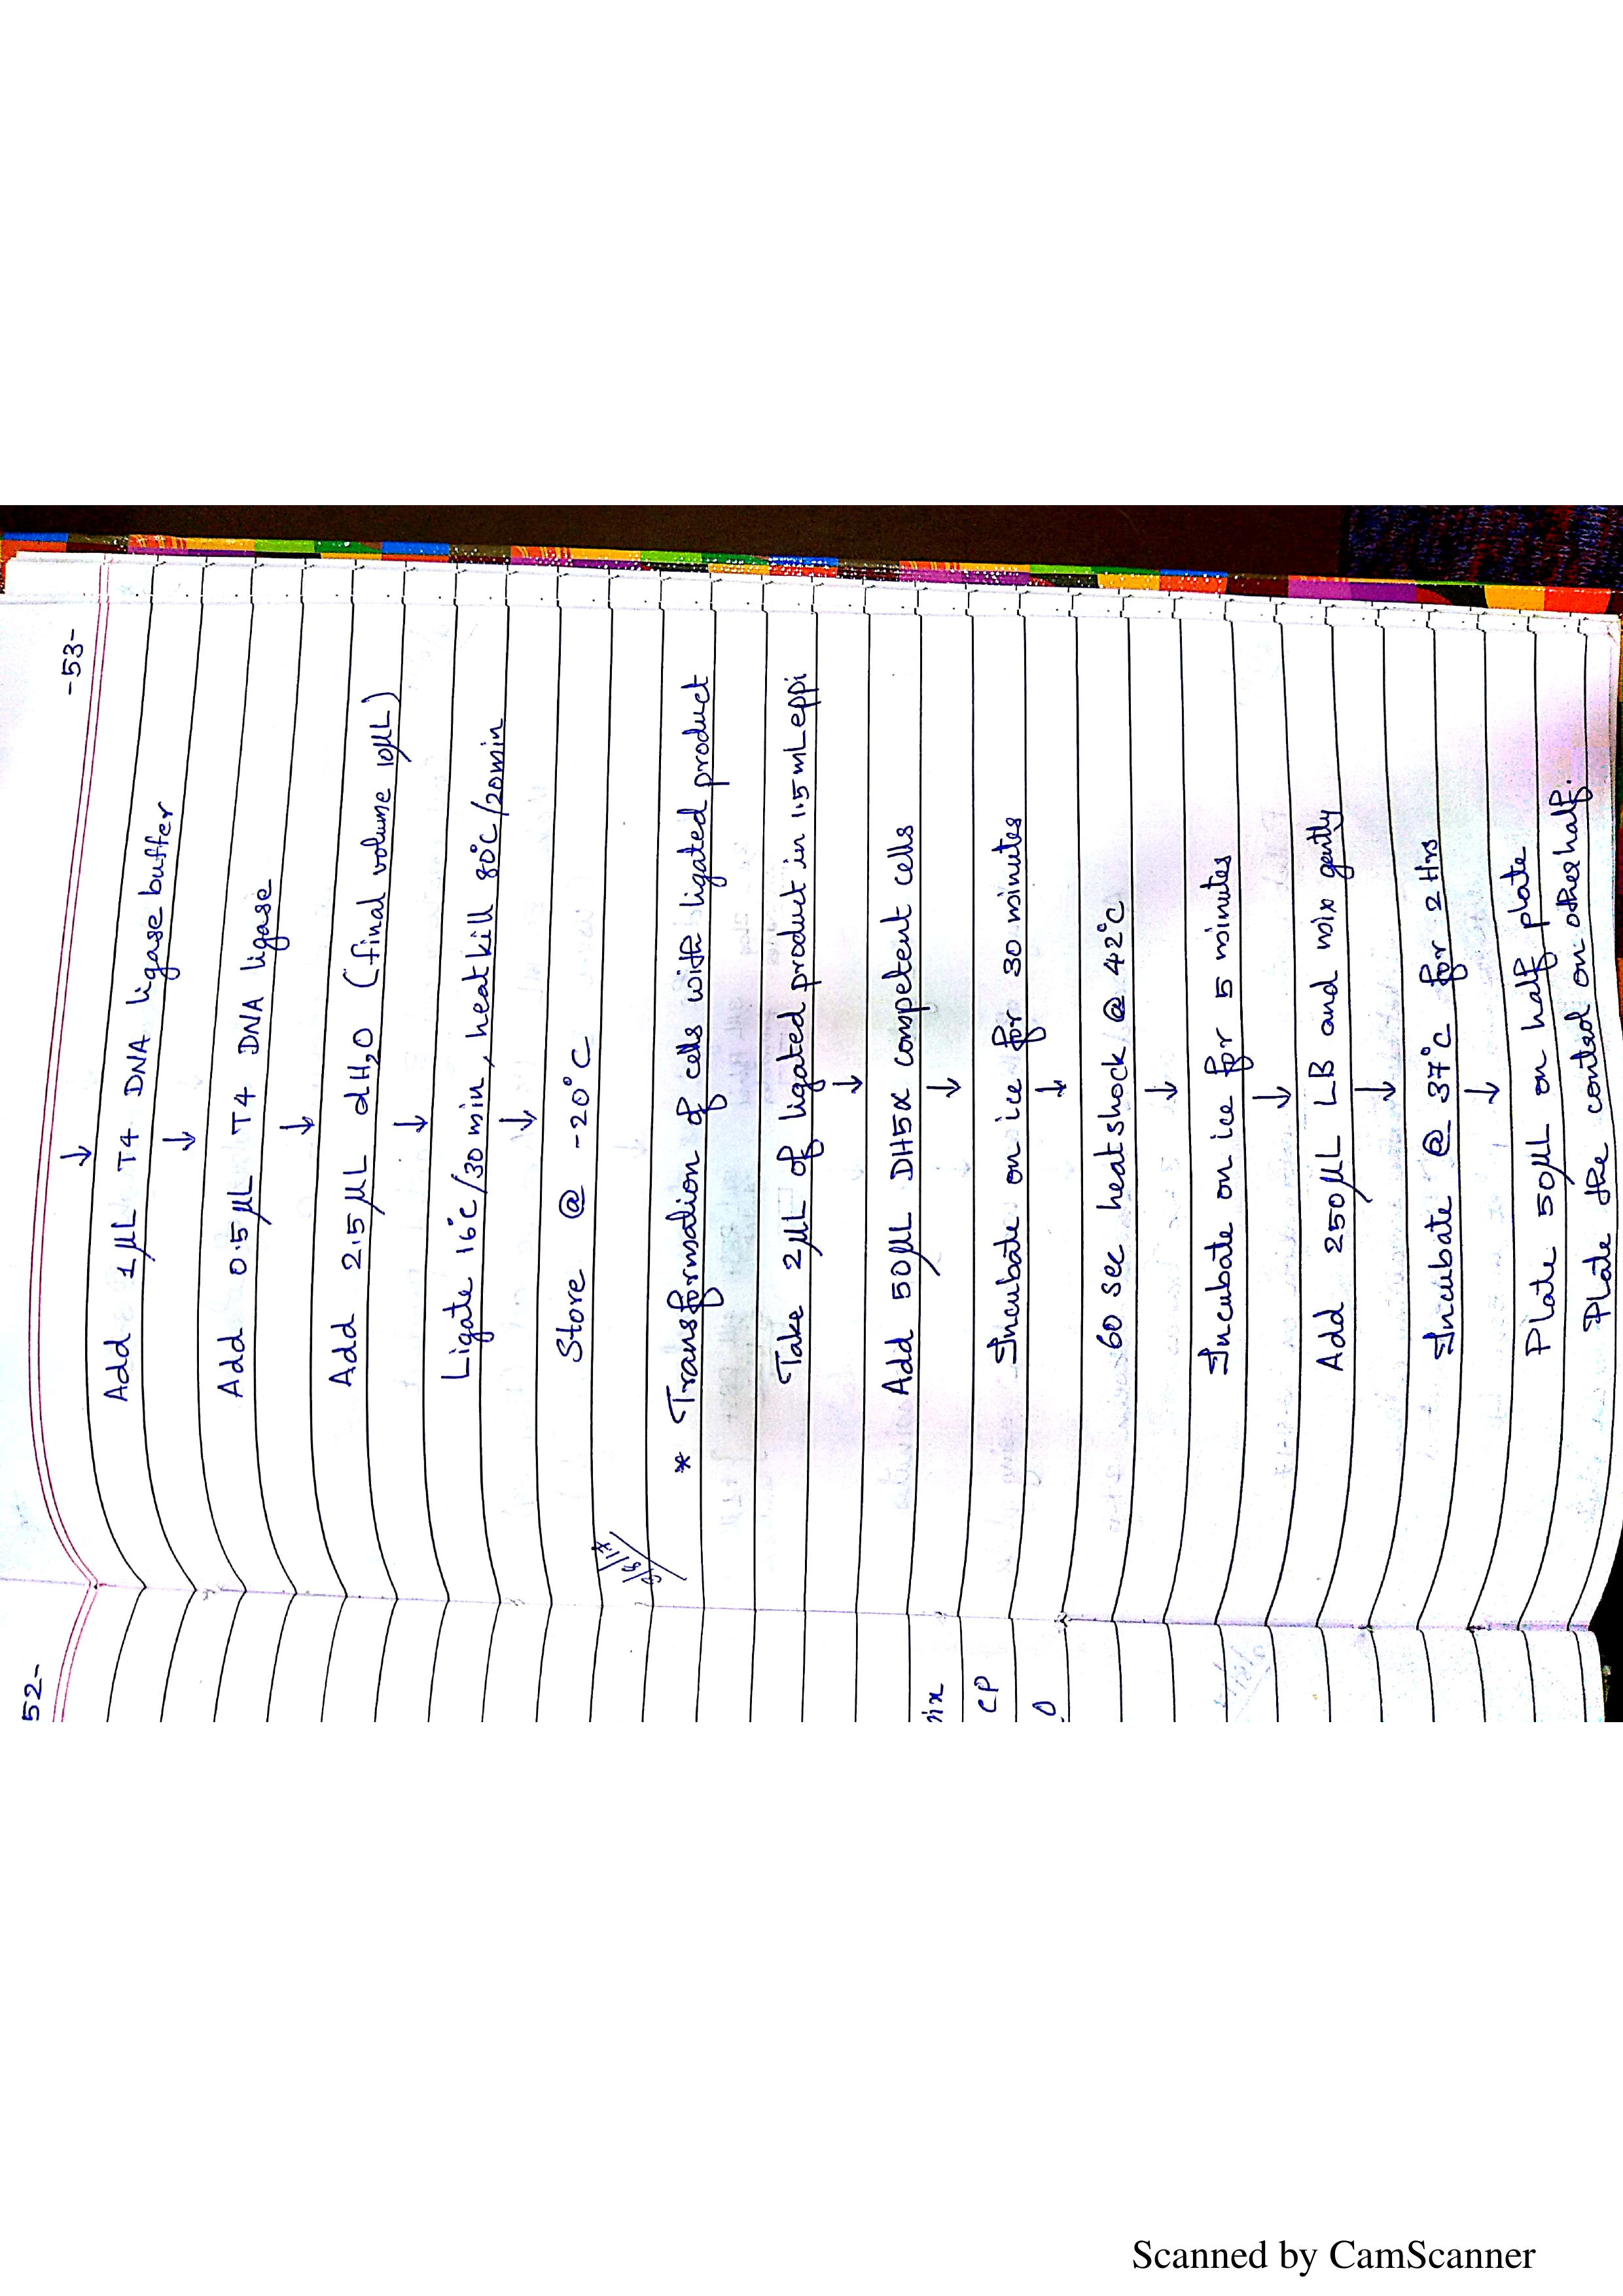 -53-
↓
Add 1µL T4 DNA ligase buffer
↓
Add 0.5µL T4 DNA ligase
↓
Add 2.5µL dH₂O (final volume 10µL)
↓
Ligate 16°C/30 min, heat kill 80°C/20min
↓
Store @ -20°C
* Transformation of cells with ligated product
Take 2µL of ligated product in 1.5mL eppi
↓
Add 50µL DH5α competent cells
↓
Incubate on ice for 30 minutes
↓
60 sec heatshock @ 42°C
↓
Incubate on ice for 5 minutes
↓
Add 250µL LB and mix gently
↓
Incubate @ 37°C for 2 Hrs
↓
Plate 50µL on half plate
Plate the control on other half.
52-
CP
Scanned by CamScanner